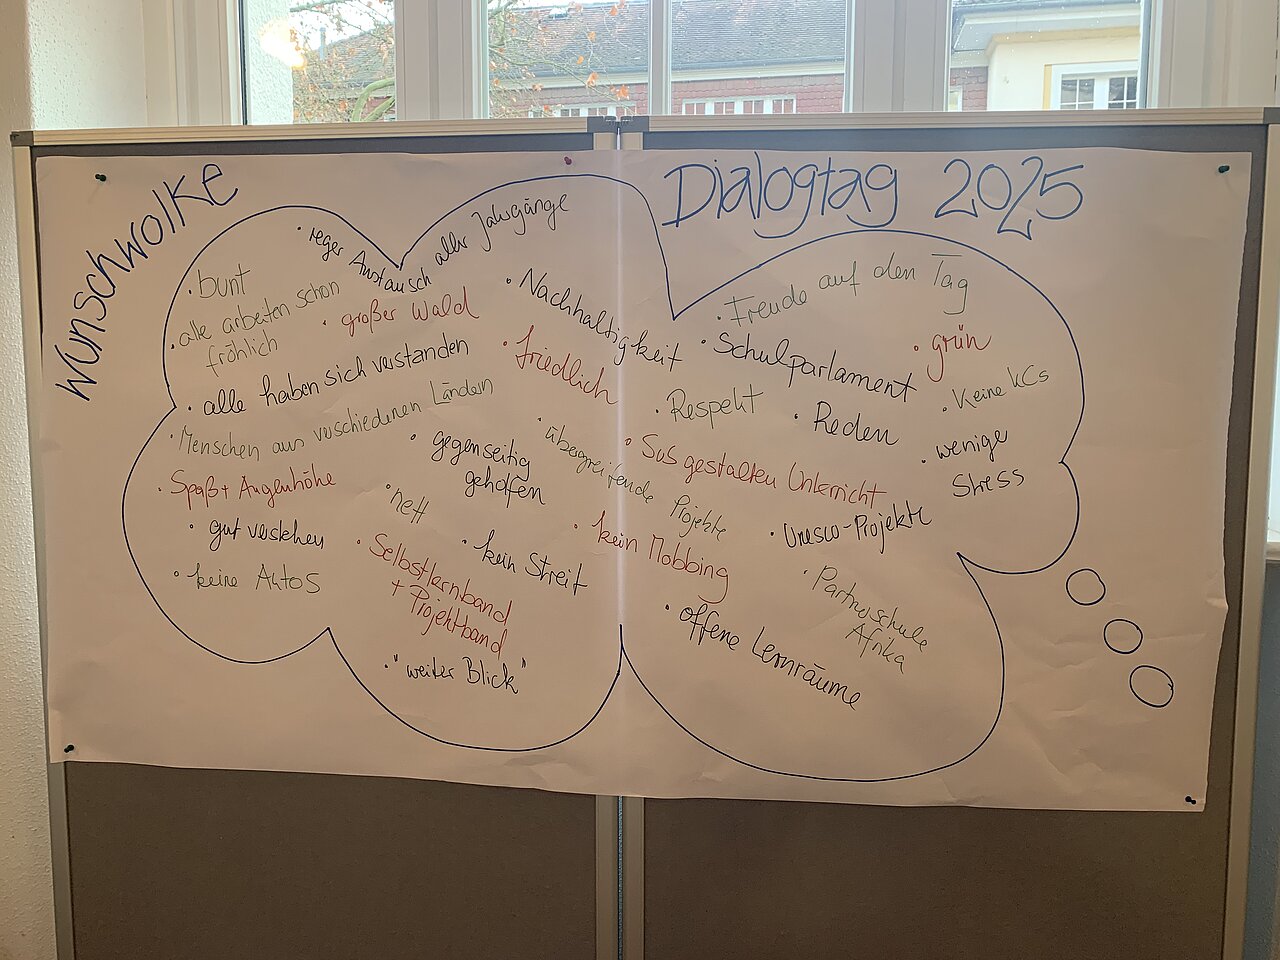 Wunschwolke
Dialogtag 2025
· reger Austausch aller Jahrgänge
· bunt
· alle arbeiten schon
fröhlich
· großer Wald
· alle haben sich verstanden
· Menschen aus verschiedenen Ländern
· Spaß + Augenhöhe
· gut verstehen
· keine Autos
· Nachhaltigkeit
· friedlich
· gegenseitig
geholfen
· nett
· übergreifende Projekte
· Selbstlernband
+ Projektband
· kein Streit
· "weiter Blick"
· Freude auf den Tag
· Schulparlament
· grün
· Respekt
· Reden
· Keine KCs
· SuS gestalten Unterricht
· wenige
Stress
· Unesco-Projekte
· kein Mobbing
· Partnerschule
Afrika
· offene Lernräume